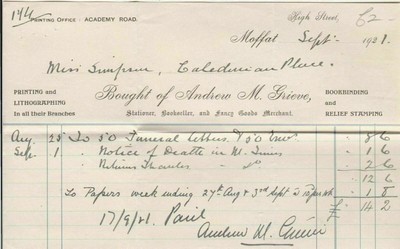 144 PRINTING OFFICE: ACADEMY ROAD.
High Street, £2-
Moffat Sept 1921.
Miss Simpson, Caledonian Place.
PRINTING and LITHOGRAPHING In all their Branches
Bought of Andrew M. Grieve,
BOOKBINDING and RELIEF STAMPING
Stationer, Bookseller, and Fancy Goods Merchant.
Aug. 25 To 50 Funeral Letters & 50 Env. 8 6
Sept. 1 " Notice of Death in M. News 1 6
" Returns Thanks do 2 6
12 6
To Papers week ending 27th Aug & 3rd Sept 1 8
£ 14 2
17/9/21. Paid
Andrew M. Grieve